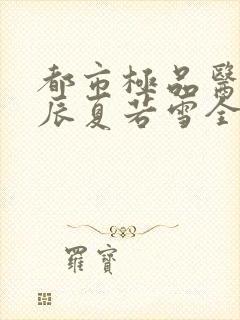 都市極品醫
辰夏若雪全
羅寶